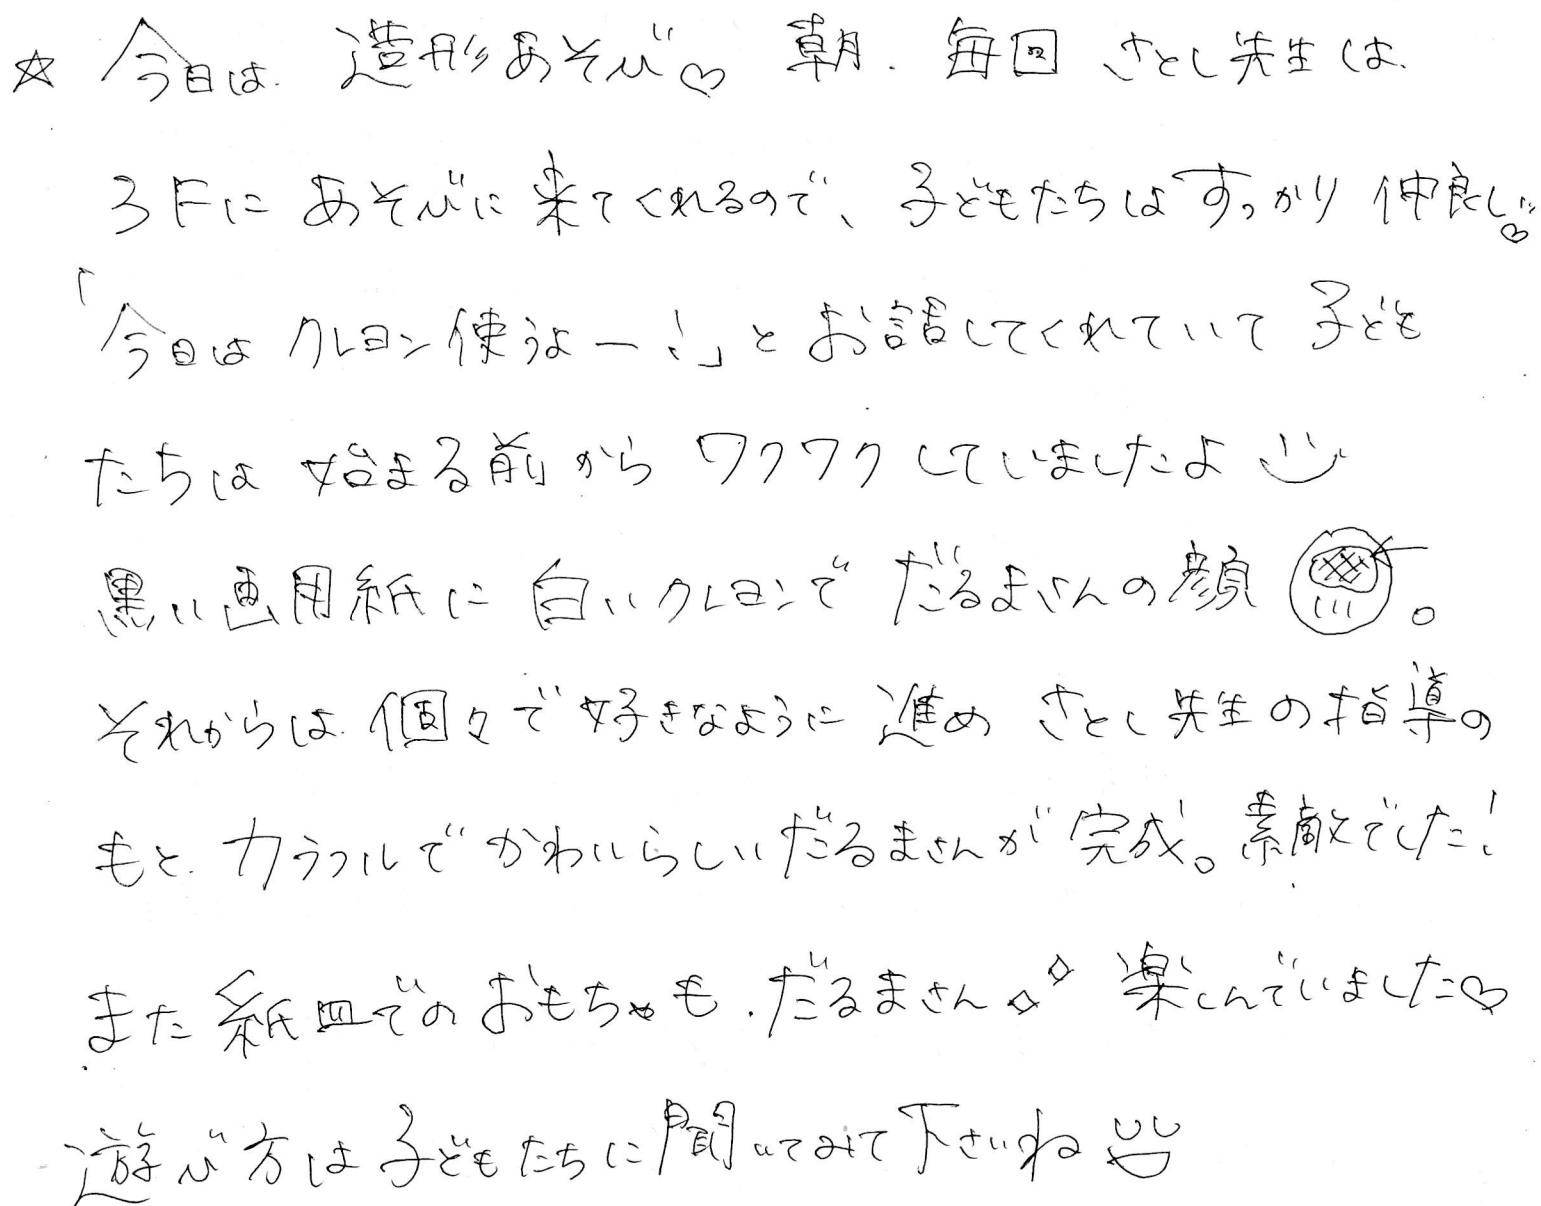 ☆ 今日は 造形あそび♡ 朝、毎回 さとし先生は、
3Fに あそびに 来てくれるので、子どもたちは すっかり 仲良し♡
「今日は クレヨン使うよー！」と お話してくれていて 子ども
たちは 始まる前から ワクワクしていましたよ
黒い画用紙に 白いクレヨンで だるまさんの顔 。
それからは 個々で好きなように 進め さとし先生の指導の
もと、カラフルで かわいらしい だるまさんが 完成。素敵でした！
また 紙皿での おもちゃも、だるまさん 楽しんでいました♡
遊び方は 子どもたちに 聞いてみて 下さいね